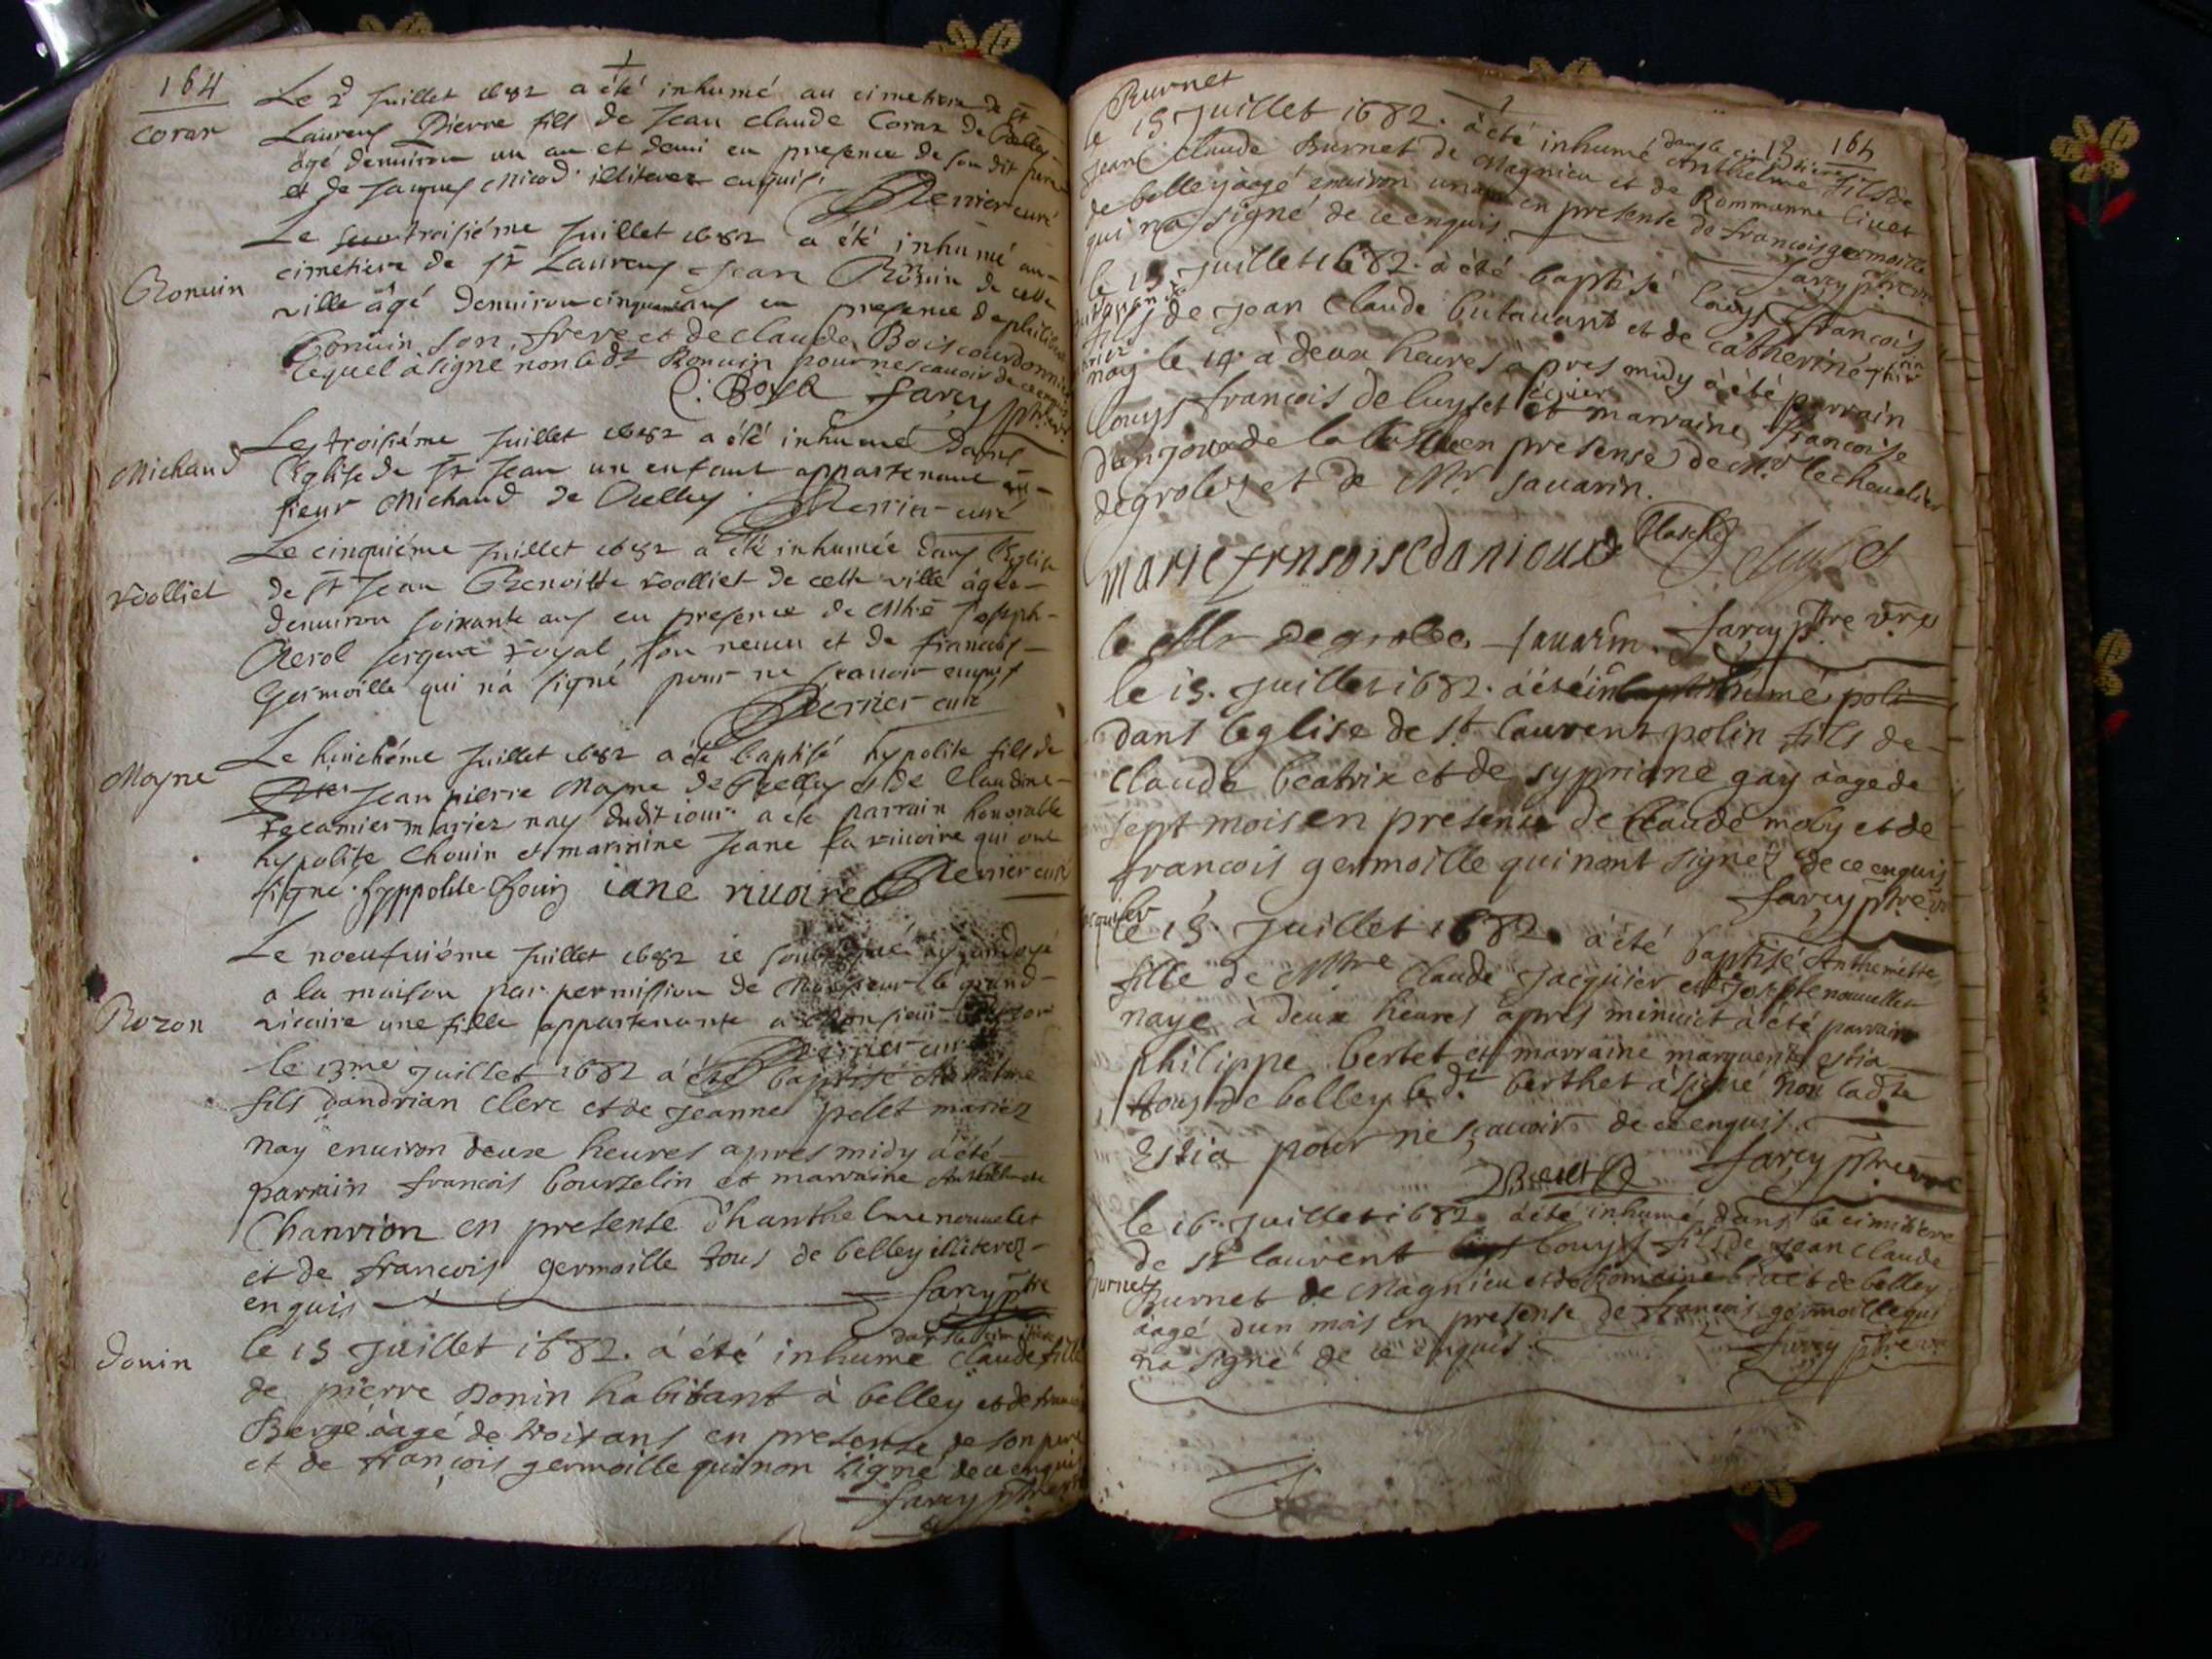 164
Coraz
Le 2d Juillet 1682 a été inhumé au cimetiere de St
Laurens Pierre fils de Jean Claude Coraz de Belley
âgé denuiron un an et demi en presence de son dit pere
et de Jaques Nicod illiterez enquis
Perrier curé
Le troisiéme Juillet 1682 a été inhumé au
Ronuin
cimetiere de St Laurens Jean Ronuin de cette
ville âgé denuiron cinquante ans en presence de philibert
Ronuin son frere et de Claude Bois courdonnier
lequel à signé non ledt Ronuin pour ne scauoir de ce enquis
C. Boys farcy ptre vre
Michaud
Le troisiéme Juillet 1682 a été inhumé dans
l'Eglise de St Jean un enfant appartenant au
sieur Michaud de Belley
Perrier curé
Le cinquiéme Juillet 1682 a été inhumée dans l'Eglise
Voolliet
de St Jean Benoitte Voolliet de cette ville âgée
denuiron soixante ans en presence de Mtre Joseph
Aerol sergent royal son neueu et de francois
Germoille qui n'a signé pour ne scauoir enquis
Perrier curé
Mayne
Le huichéme Juillet 1682 a été baptisé hypolite fils de
Jean pierre Mayne de Belley et de Claudine
Tecamier mariez nay dudit iour a été parrain honorable
hypolite Chouin et marinine Jeane la riuoire qui ont
signé hyppolite Chouin iane riuoire Perrier curé
Le noeufuiéme Juillet 1682 ie soubsigné ay ondoyé
a la maison par permission de Monsieur le grand
Rozon
vicaire une fille appartenante a Monsieur Rozon
Perrier curé
le 13me Juillet 1682 à été baptisé Anthelme
fils dandrian Clerc et de Jeanne pelet mariez
nay enuiron deux heures apres midy à été
parrain francois bourzelin et marraine
Chanrion en presente d'hanthelme nouuelet
et de francois germoille tous de belley illiterez
enquis farcy ptre
Donin
le 15 Juillet 1682. à été inhumé dans le cimitiere Claude fille
de pierre Donin habitant à belley et de
Berge àagé de trois ans en presente de son pere
et de françois germoille qui non signé de ce enquis
farcy ptre vre
Burnet
12 164
le 15 Juillet 1682. à été inhumé dans le cimitiere Anthelme fils de
Jean Claude Burnet de Magnieu et de Rommanne liuet
de belley àagé enuiron un an en presente de francois germoille
qui na signé de ce enquis. farcy ptre vre
le 15 Juillet 1682. à été baptisé louys francois
fils de Jean Claude butauant et de Catherine
nay le 14 à deux heures apres midy à été parrain
louys francois de luyset et marraine francoise
danjoux de la en presense de Mr le cheualier
degroley et de Mr sauarin.
marie frnsoise danioux
le Mr degrolee sauarin. farcy ptre vre
le 15. Juillet 1682. à été inhumé
dans leglise de st laurent polin fils de
Claude beatrix et de sypriane gay àage de
sept mois en presense de Claude moly et de
francois germoille qui nont signez de ce enquis
farcy ptre vre
Jacquier
le 15 Juillet 1682 à été baptisé Anthemette
fille de Mtre Claude Jacquier et Josepte nouuellet
naye à deux heures apres minuict à été parrain
philippe bertet et marraine marguerite estia
tous de belley le dt berthet à signé non ladte
Estia pour ne sçauoir de ce enquis.
Bertet farcy ptre vre
le 16 Juillet 1682 à été inhumé dans le cimitiere
de st laurent louys fils de Jean Claude
Burnet
Burnet de Magnieu et de Romaine liuet de belley
àagé dun mois en presense de francois germoille qui
na signé de ce enquis. farcy ptre vre